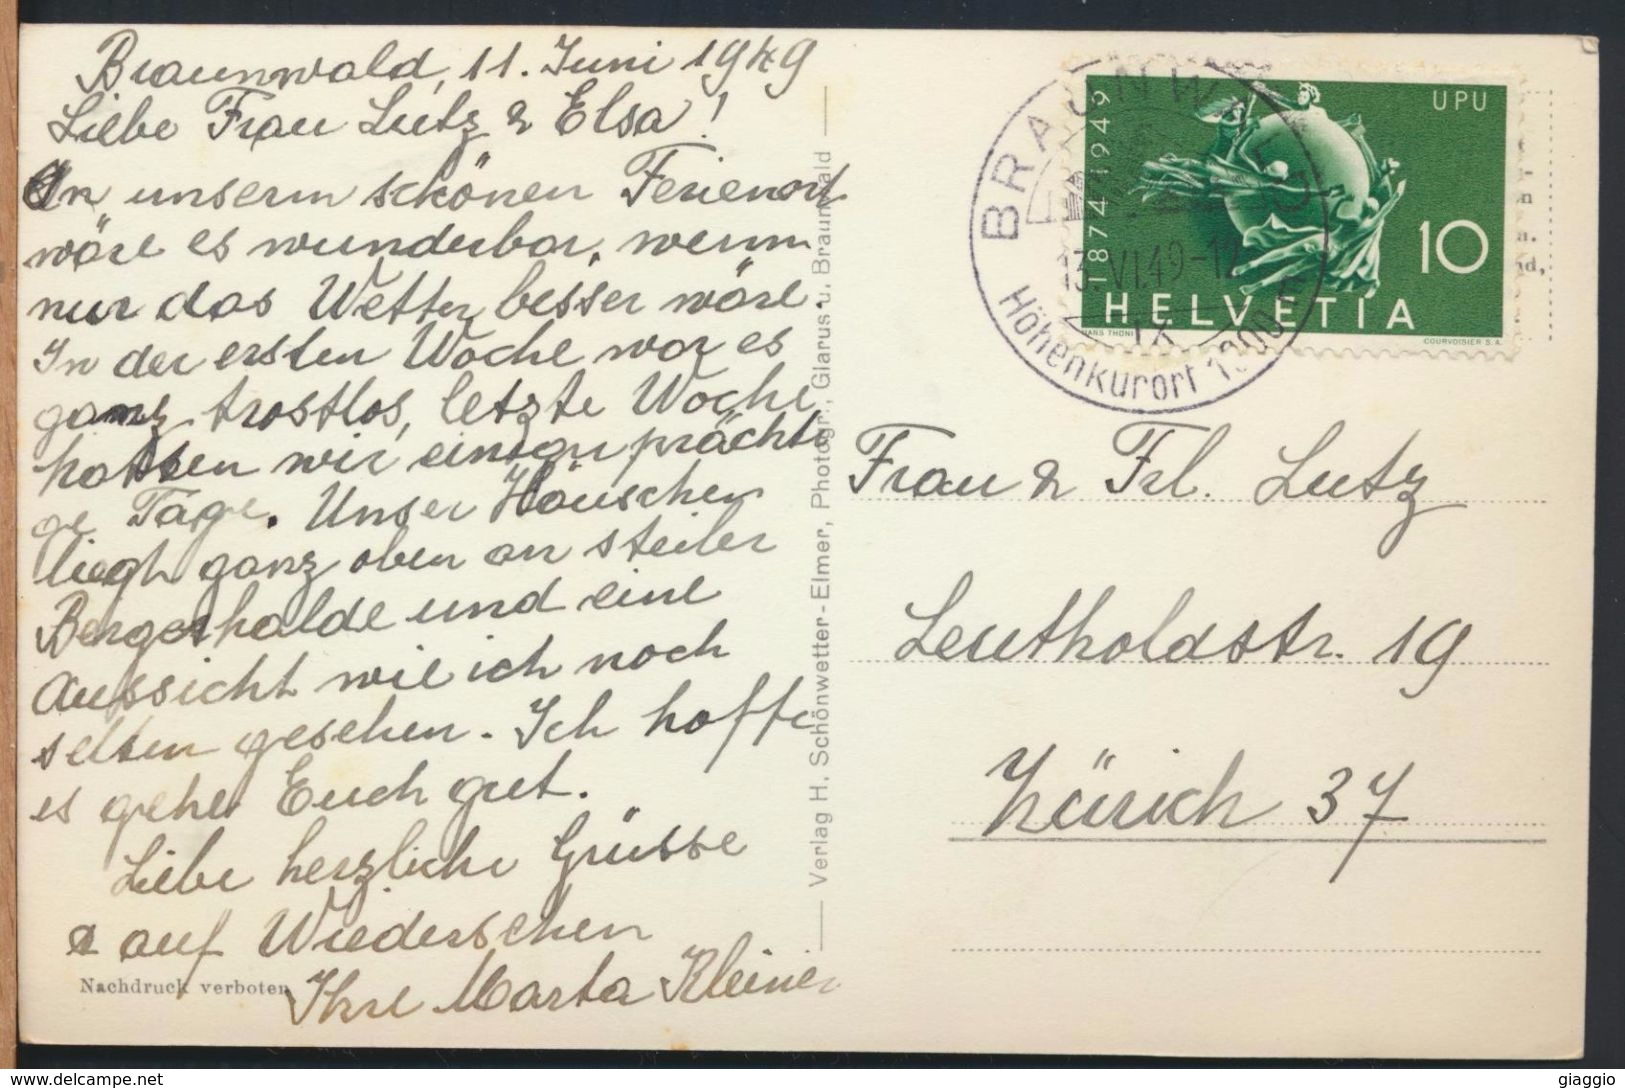 Braunwald, 11. Juni 1949
Liebe Frau Lutz & Elsa!
An unserm schönen Ferienort
wäre es wunderbar, wenn
nur das Wetter besser wäre.
In der ersten Woche war es
ganz trostlos, letzte Woche
hatten wir einige prächti
ge Tage. Unser Häuschen
liegt ganz oben an steiler
Bergeshalde und eine
Aussicht wie ich noch
selten gesehen. Ich hoffe
es gehe Euch gut.
Liebe herzliche Grüsse
& auf Wiedersehen
Ihre Marta Kleiner
Nachdruck verboten
Verlag H. Schönwetter-Elmer, Photogr., Glarus u. Braunwald
BRAUNWALD
13.VI.49-12
Höhenkurort 1300 m
1874 1949
UPU
10
HELVETIA
HANS THÖNI
COURVOISIER S.A.
Frau & Frl. Lutz
Leutholdstr. 19
Zürich 37
giaggio
www.delcampe.net